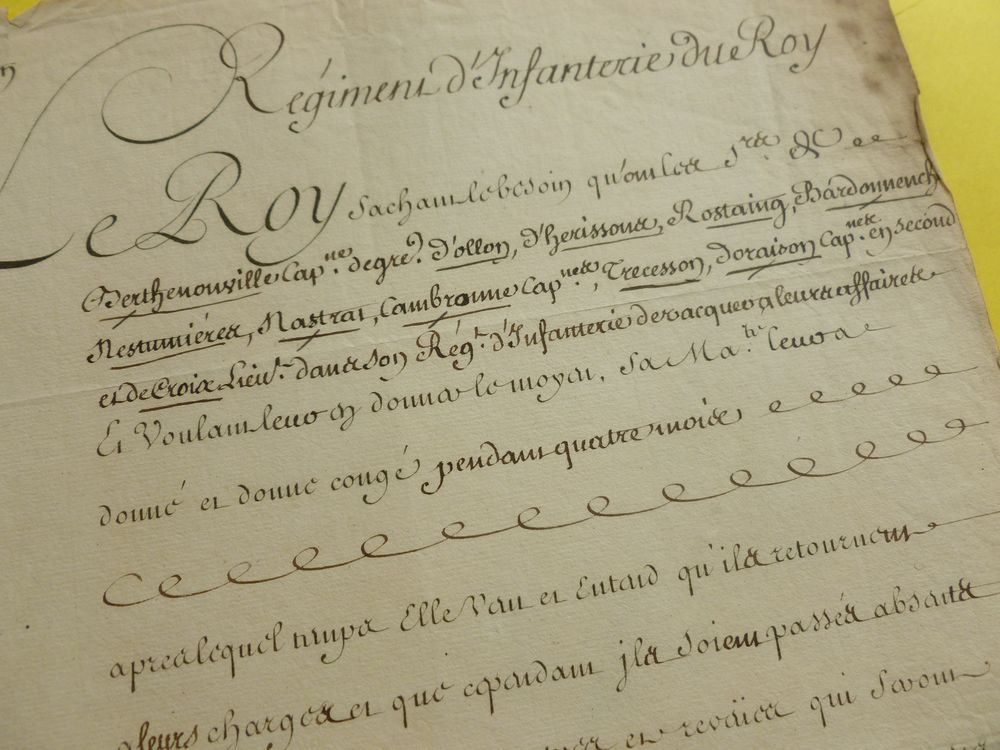 Régiment d'Infanterie du Roy
Le Roy sachant le besoin qu'ont les Srs. de
Berthenouville Capne. de gre. d'ollon, d'herissons, Rostaing, Bardonnench
Nestumiéres, Nastrat, Cambronne Capnes, Trecesson, Doraison Capnes. en second
et de Croix Lieut. dans son Régt. d'Infanterie de vacquer a leurs affaires
Et Voulant leur en donner le moyen, Sa Maté. leur a
donné et donne congé pendant quatre mois,
apres lequel temps Elle Veut et Entend qu'ils retournent
a leurs charges et que cependant ils soient passés absents
et reveües qui Seront